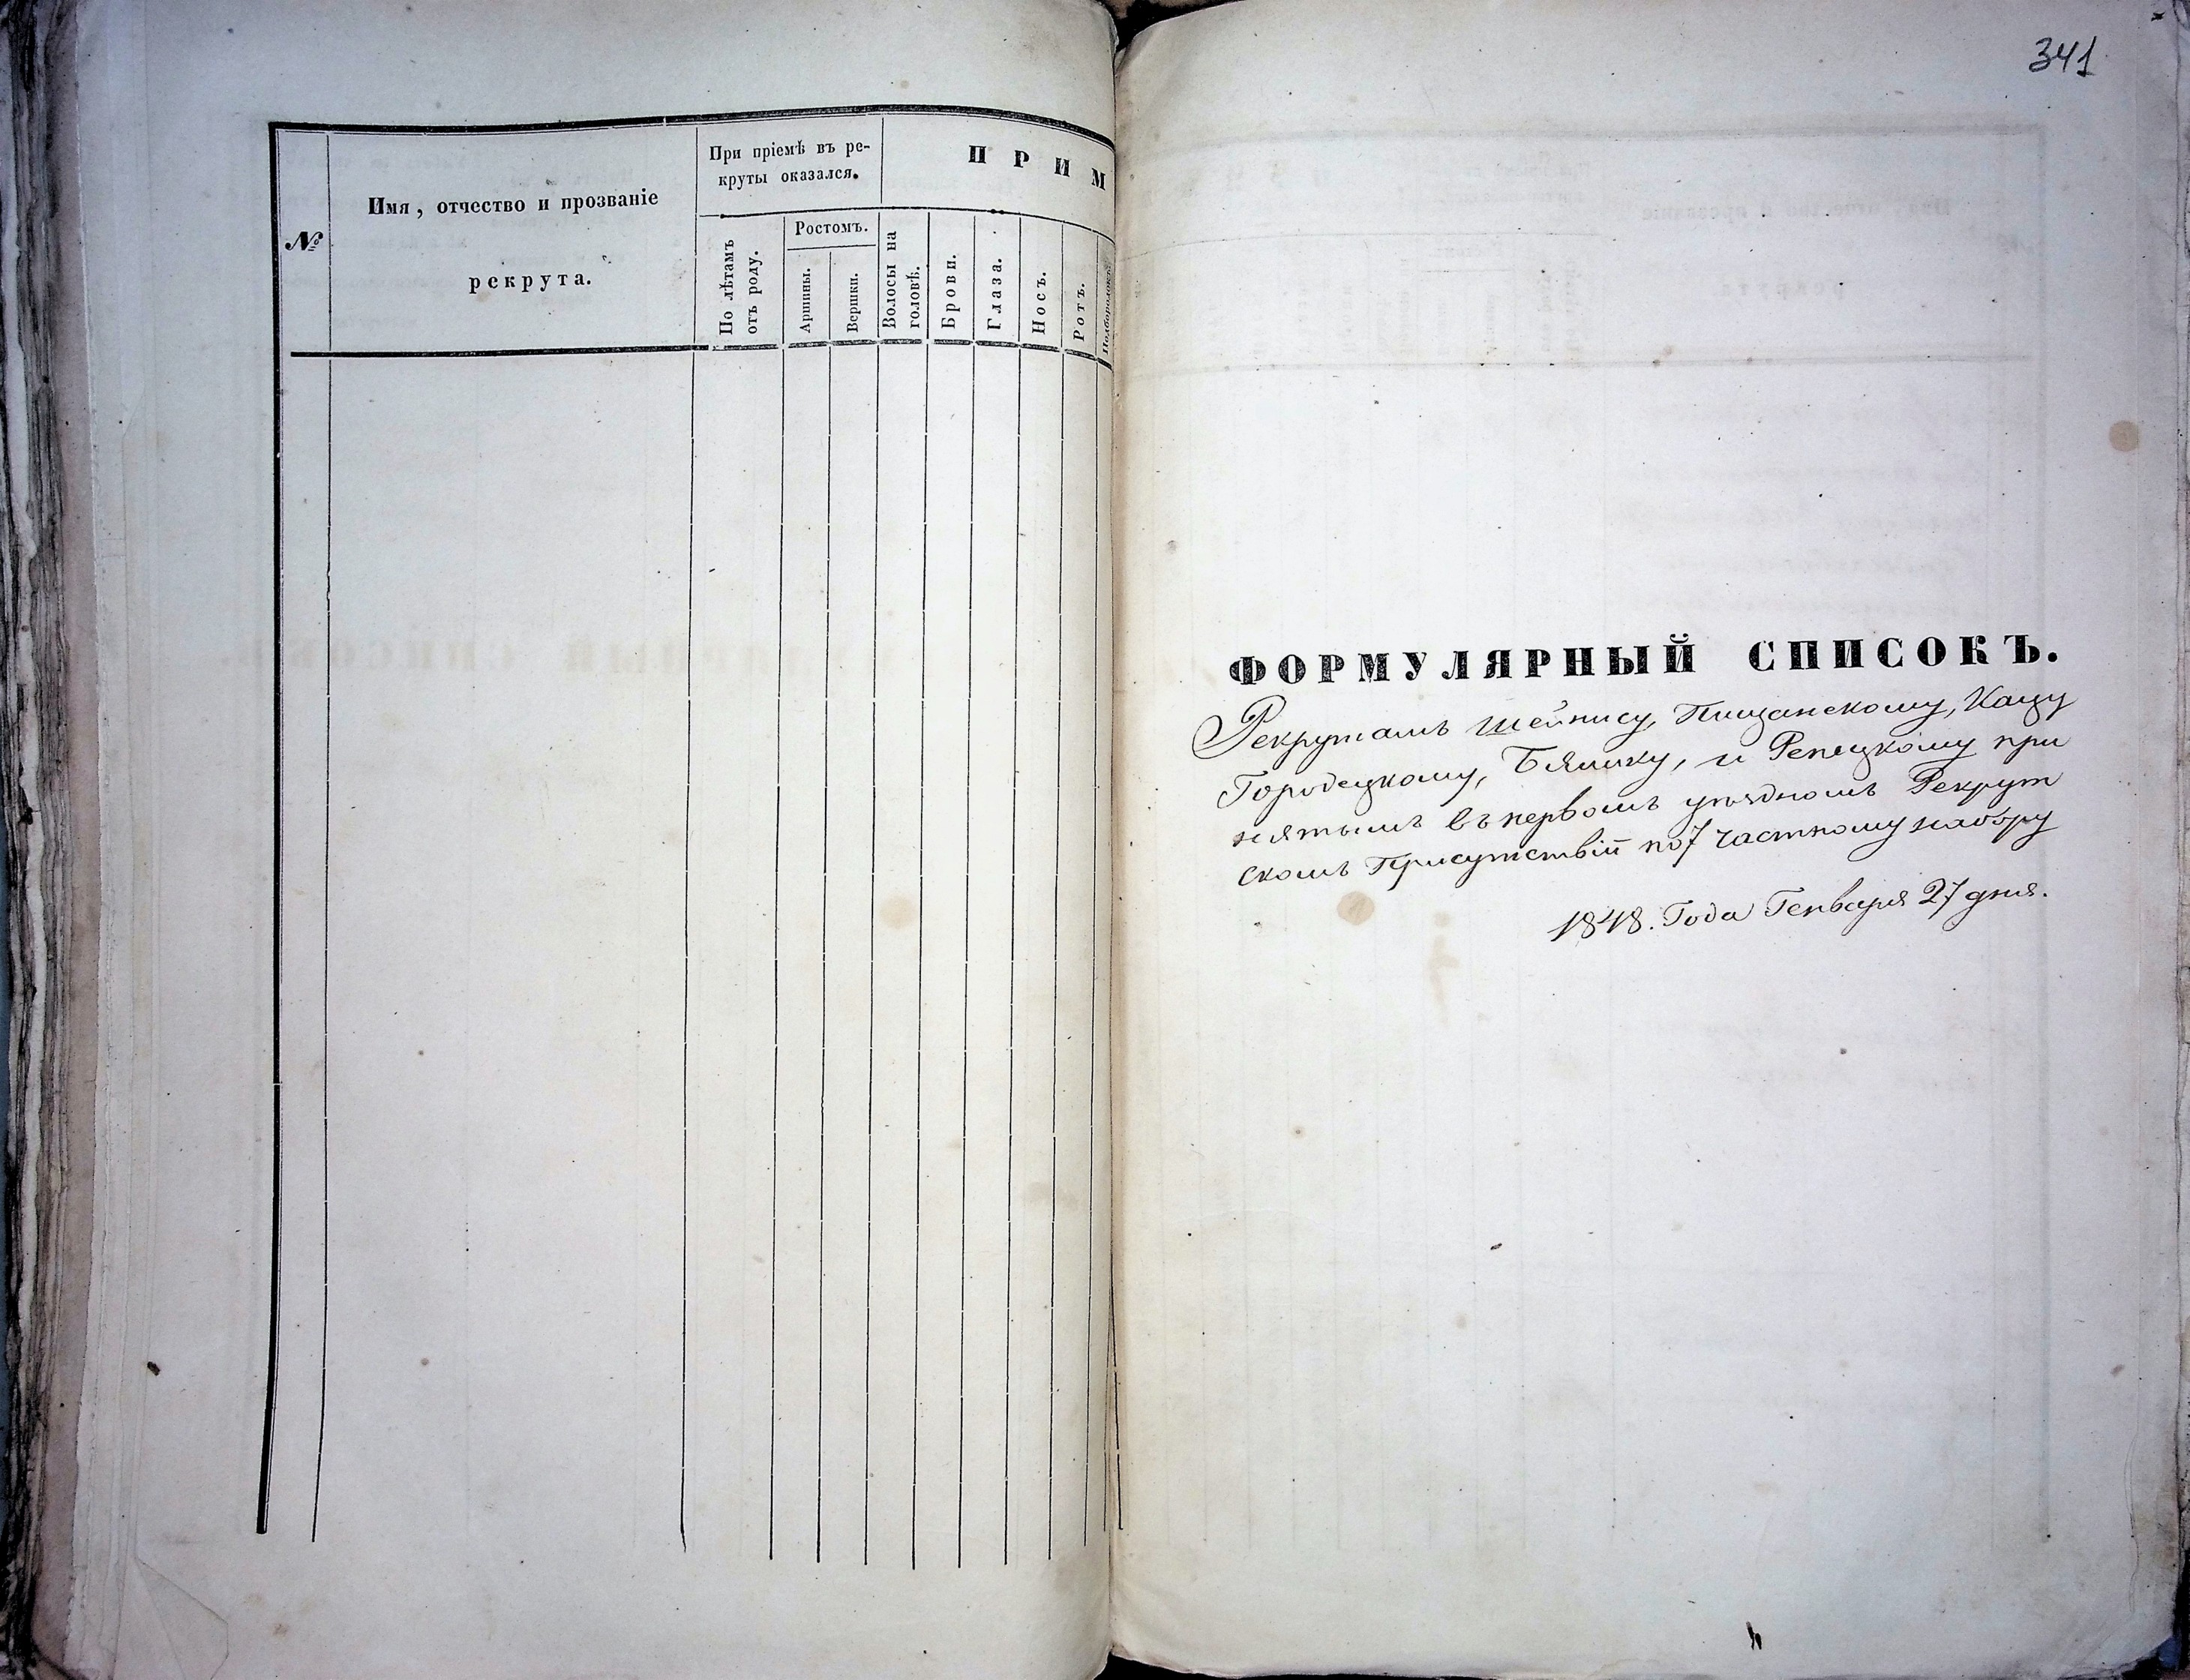 №
Имя, отчество и прозваніе
рекрута.
При пріемѣ въ ре-
круты оказался.
По лѣтамъ
отъ роду.
Ростомъ.
Аршины.
Вершки.
ПРИМ
Волосы на
головѣ.
Брови.
Глаза.
Носъ.
Ротъ.
Подбородокъ
341
ФОРМУЛЯРНЫЙ СПИСОКЪ.
Рекрутамъ Шейнису, Пищанскому, Кацу
Городецкому, и Репецкому при
нятымъ въ первомъ уѣздномъ Рекрут
скомъ Присутствіи по 7 частному набору
1848. Года Генваря 27 дня.